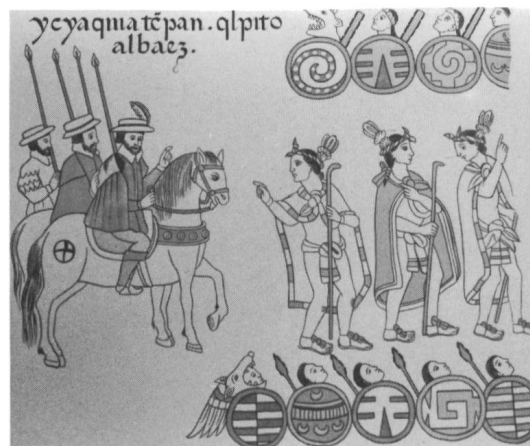 yeyaquiuatēpan . qlpito
albarez.